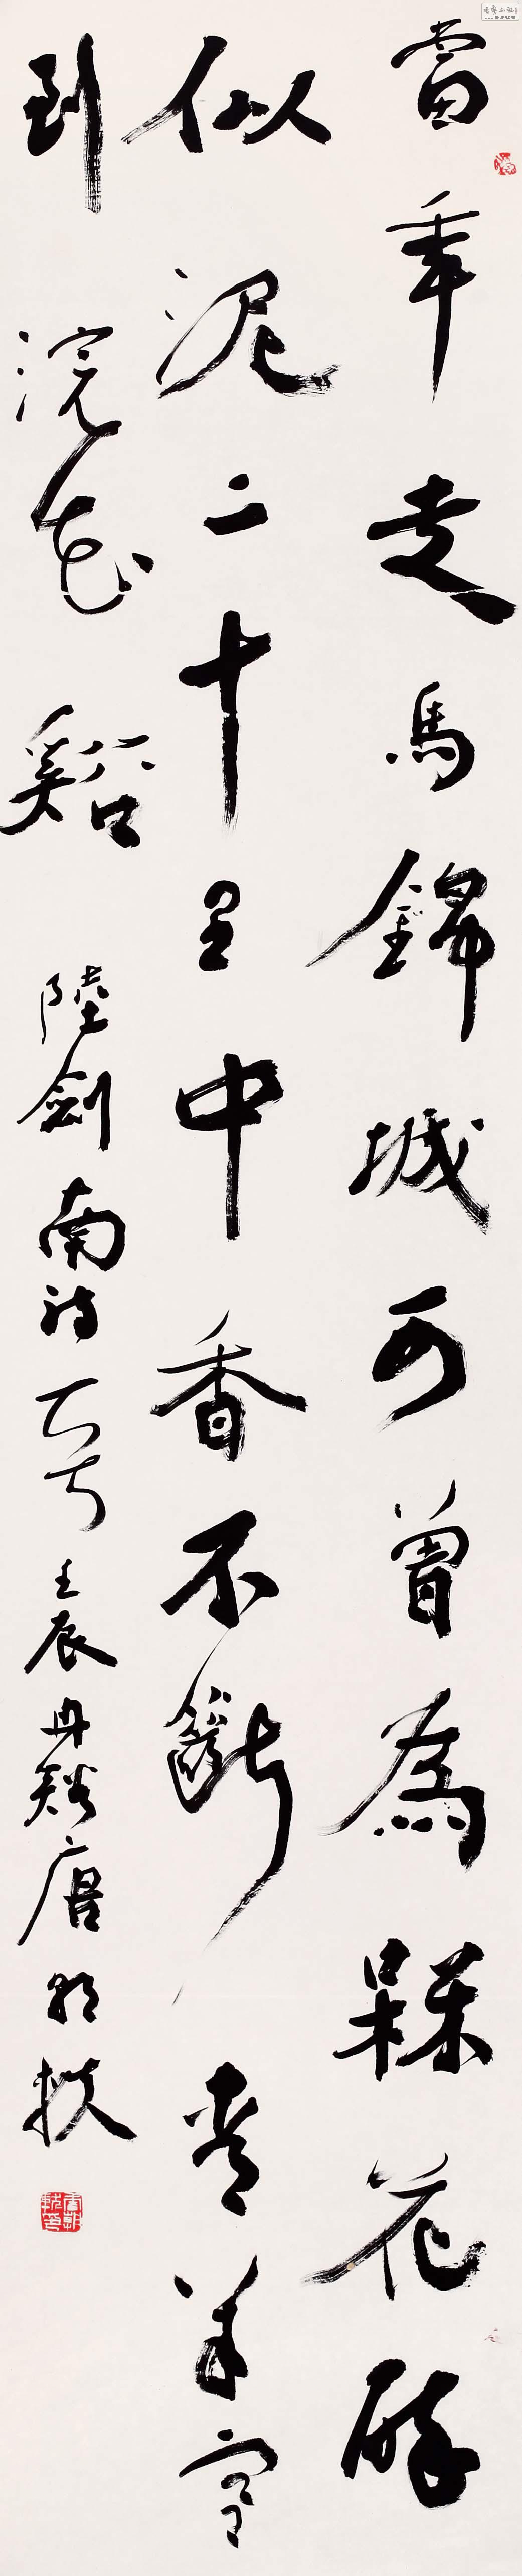 當年走馬錦城西曾為槑花醉
似泥二十里中香不斷青羊宮
到浣花谿 陸劍南詩 壬辰丹谿唐朝軼